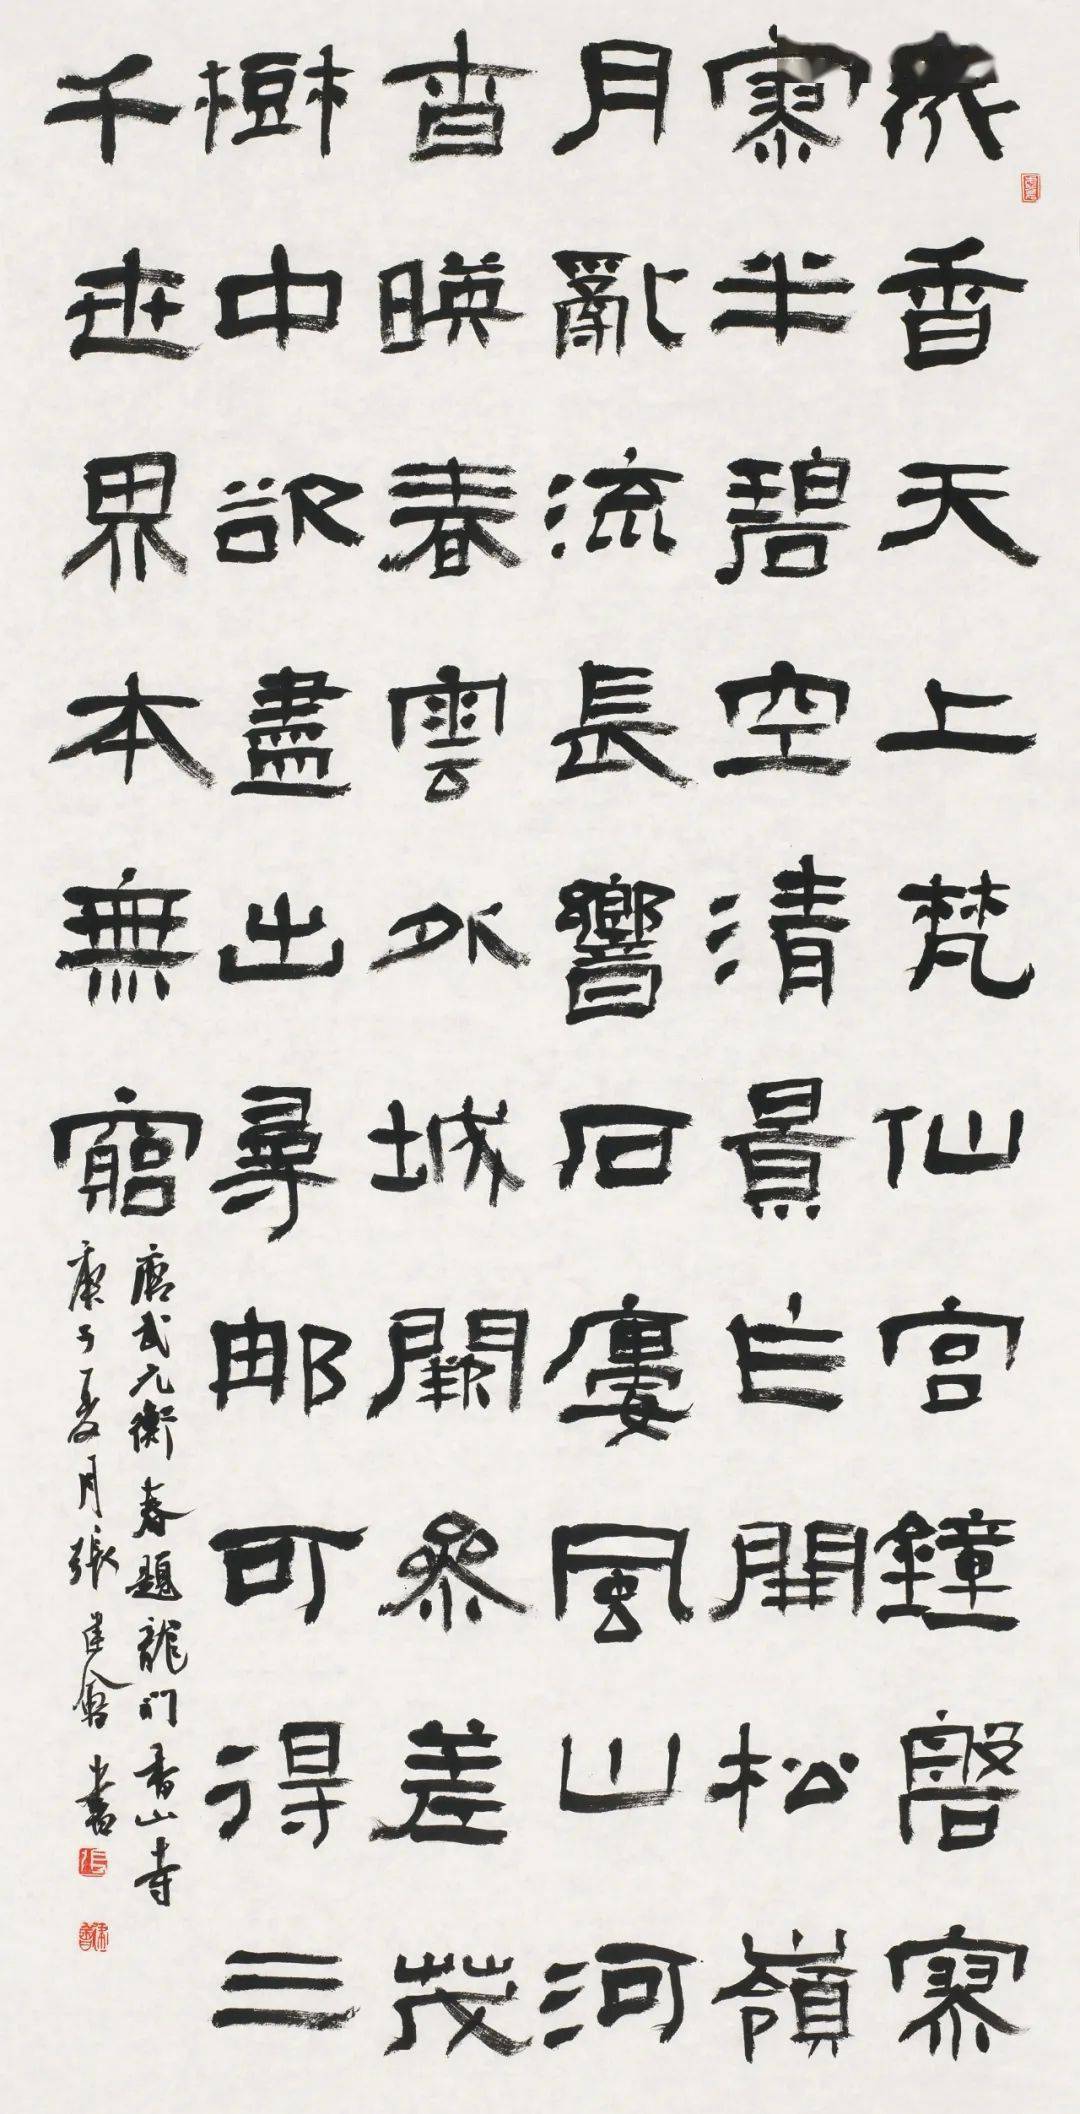 衆香天上梵仙宮鐘磬寥
寥半碧空清景乍開松嶺
月亂流長響石廔風山河
杳暎春雲外城闕參差茂
樹中欲盡出尋那可得三
千世界本無窮
唐武元衡春題龍門香山寺
庚子夏月張建會書